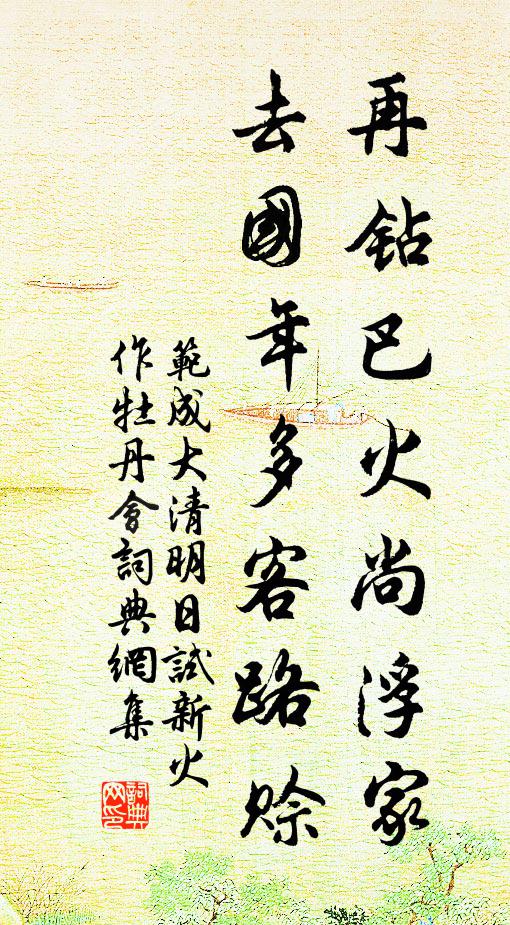 再钻巴火尚浮家
去國年多客路赊
範成大清明日試新火
作牡丹會詞典網集
詞典
网印